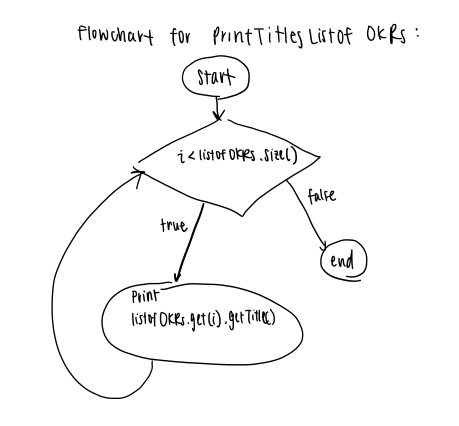 Flowchart for PrintTitlesListof OKRs:
Start
i < listofOKRs.size()
true
false
end
Print
listofOKRs.get(i).getTitle()